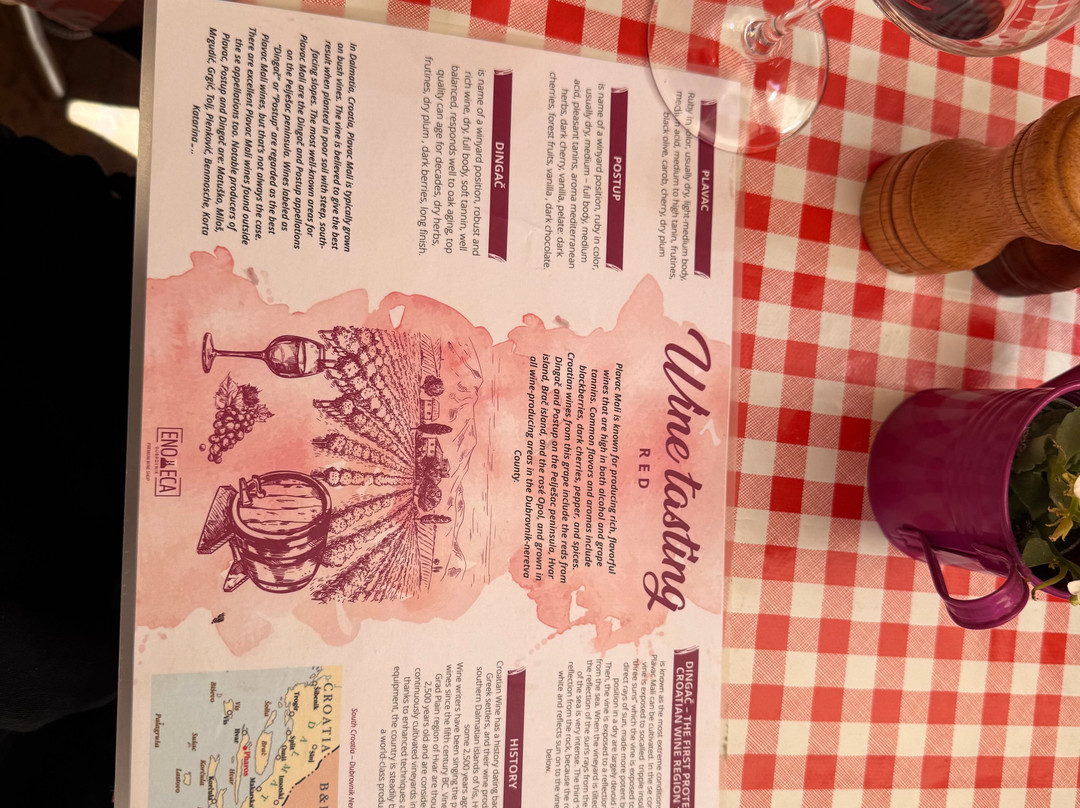 PLAVAC
Ruby in color, usually dry, light-medium body,
medium acid, medium to high tanin, frutines,
black olive, carob, cherry, dry plum
POSTUP
is name of a winyard position, ruby in color,
usually dry, medium – full body, medium
acid, pleasant tanins, aroma mediterranean
herbs, dark cherry, vanilla, pelate: dark
cherries, forest fruits, vanilla , dark chocolate.
DINGAČ
is name of a winyard position, robust and
rich wine, dry, full body, soft tannin, well
balanced, responds well to oak aging, top
quality can age for decades, dry herbs,
frutines, dry plum , dark berries, long finish.
In Dalmatia, Croatia, Plavac Mali is typically grown
on bush vines. The vine is believed to give the best
result when planted in poor soil with steep, south-
facing slopes. The most well-known areas for
Plavac Mali are the Dingač and Postup appellations
on the Pelješac peninsula. Wines labeled as
"Dingač" or "Postup" are regarded as the best
Plavac Mali wines, but that's not always the case.
There are excellent Plavac Mali wines found outside
the se appellations too. Notable producers of
Plavac, Postup and Dingač are: Matuško, Miloš,
Mrgudić, Grgić, Tolj, Plenković, Benmosche, Korta
Katarina...
Wine tasting
RED
Plavac Mali is known for producing rich, flavorful
wines that are high in both alcohol and grape
tannins. Common flavors and aromas include
blackberries, dark cherries, pepper, and spices.
Croatian wines from this grape include the reds from
Dingač and Postup on the Pelješac peninsula, Hvar
island, Brač island, and the rosé Opol, and grown in
all wine-producing areas in the Dubrovnik-neretva
County.
ENO TECA
DINGAČ – THE FIRST PROTE
CROATIAN WINE REGION
is known as the most extreme conditions
Plavac Mali can be cultivated. In the se co
vine is exposed to socalled tripple
"three suns" which the vine is exposed
direct rays of sun, made more potent b
position in a dry are largely devoid
Then, the vine is exposed to a reflection
from the sea. When the vineyard is tilted
the reflection of the sun's rays from the
of the sea is very intense. The third "
reflection from the rock, because the
white and reflects sun on to the vine
below.
HISTORY
Croatian Wine has a history dating ba
Greek settlers, and their wine prod
southern Dalmatian islands of Vis, H
some 2,500 years ago
Wine writers have been singing the p
wines since the fifth century BC. Vine
Grad Plain region of Hvar are thou
2,500 years old and are conside
continuously cultivated vineyards in
thanks to enhanced techniques
equipment, the country is steadily b
a world-class produ
South Croatia – Dubrovnik Ne
CROATIA
B & H
Šibenik
Trogir
Split
Omiš
Šolta
Brač
Makarska
Imotski
Vis
Hvar
Pharos
Biševo
Sušac
Korčula
Lastovo
Palagruža